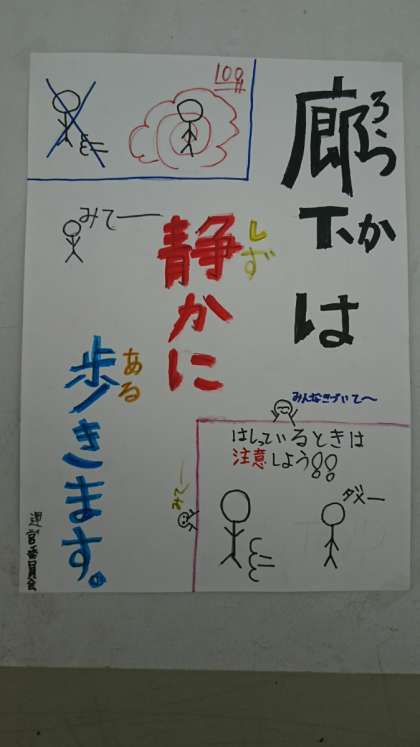 廊下は
ろう
か
静かに
しず
歩きます。
ある
100
みてー
みんなきづいて〜
はしっているときは
注意しよう!!
ダメー
みてー
運営委員会